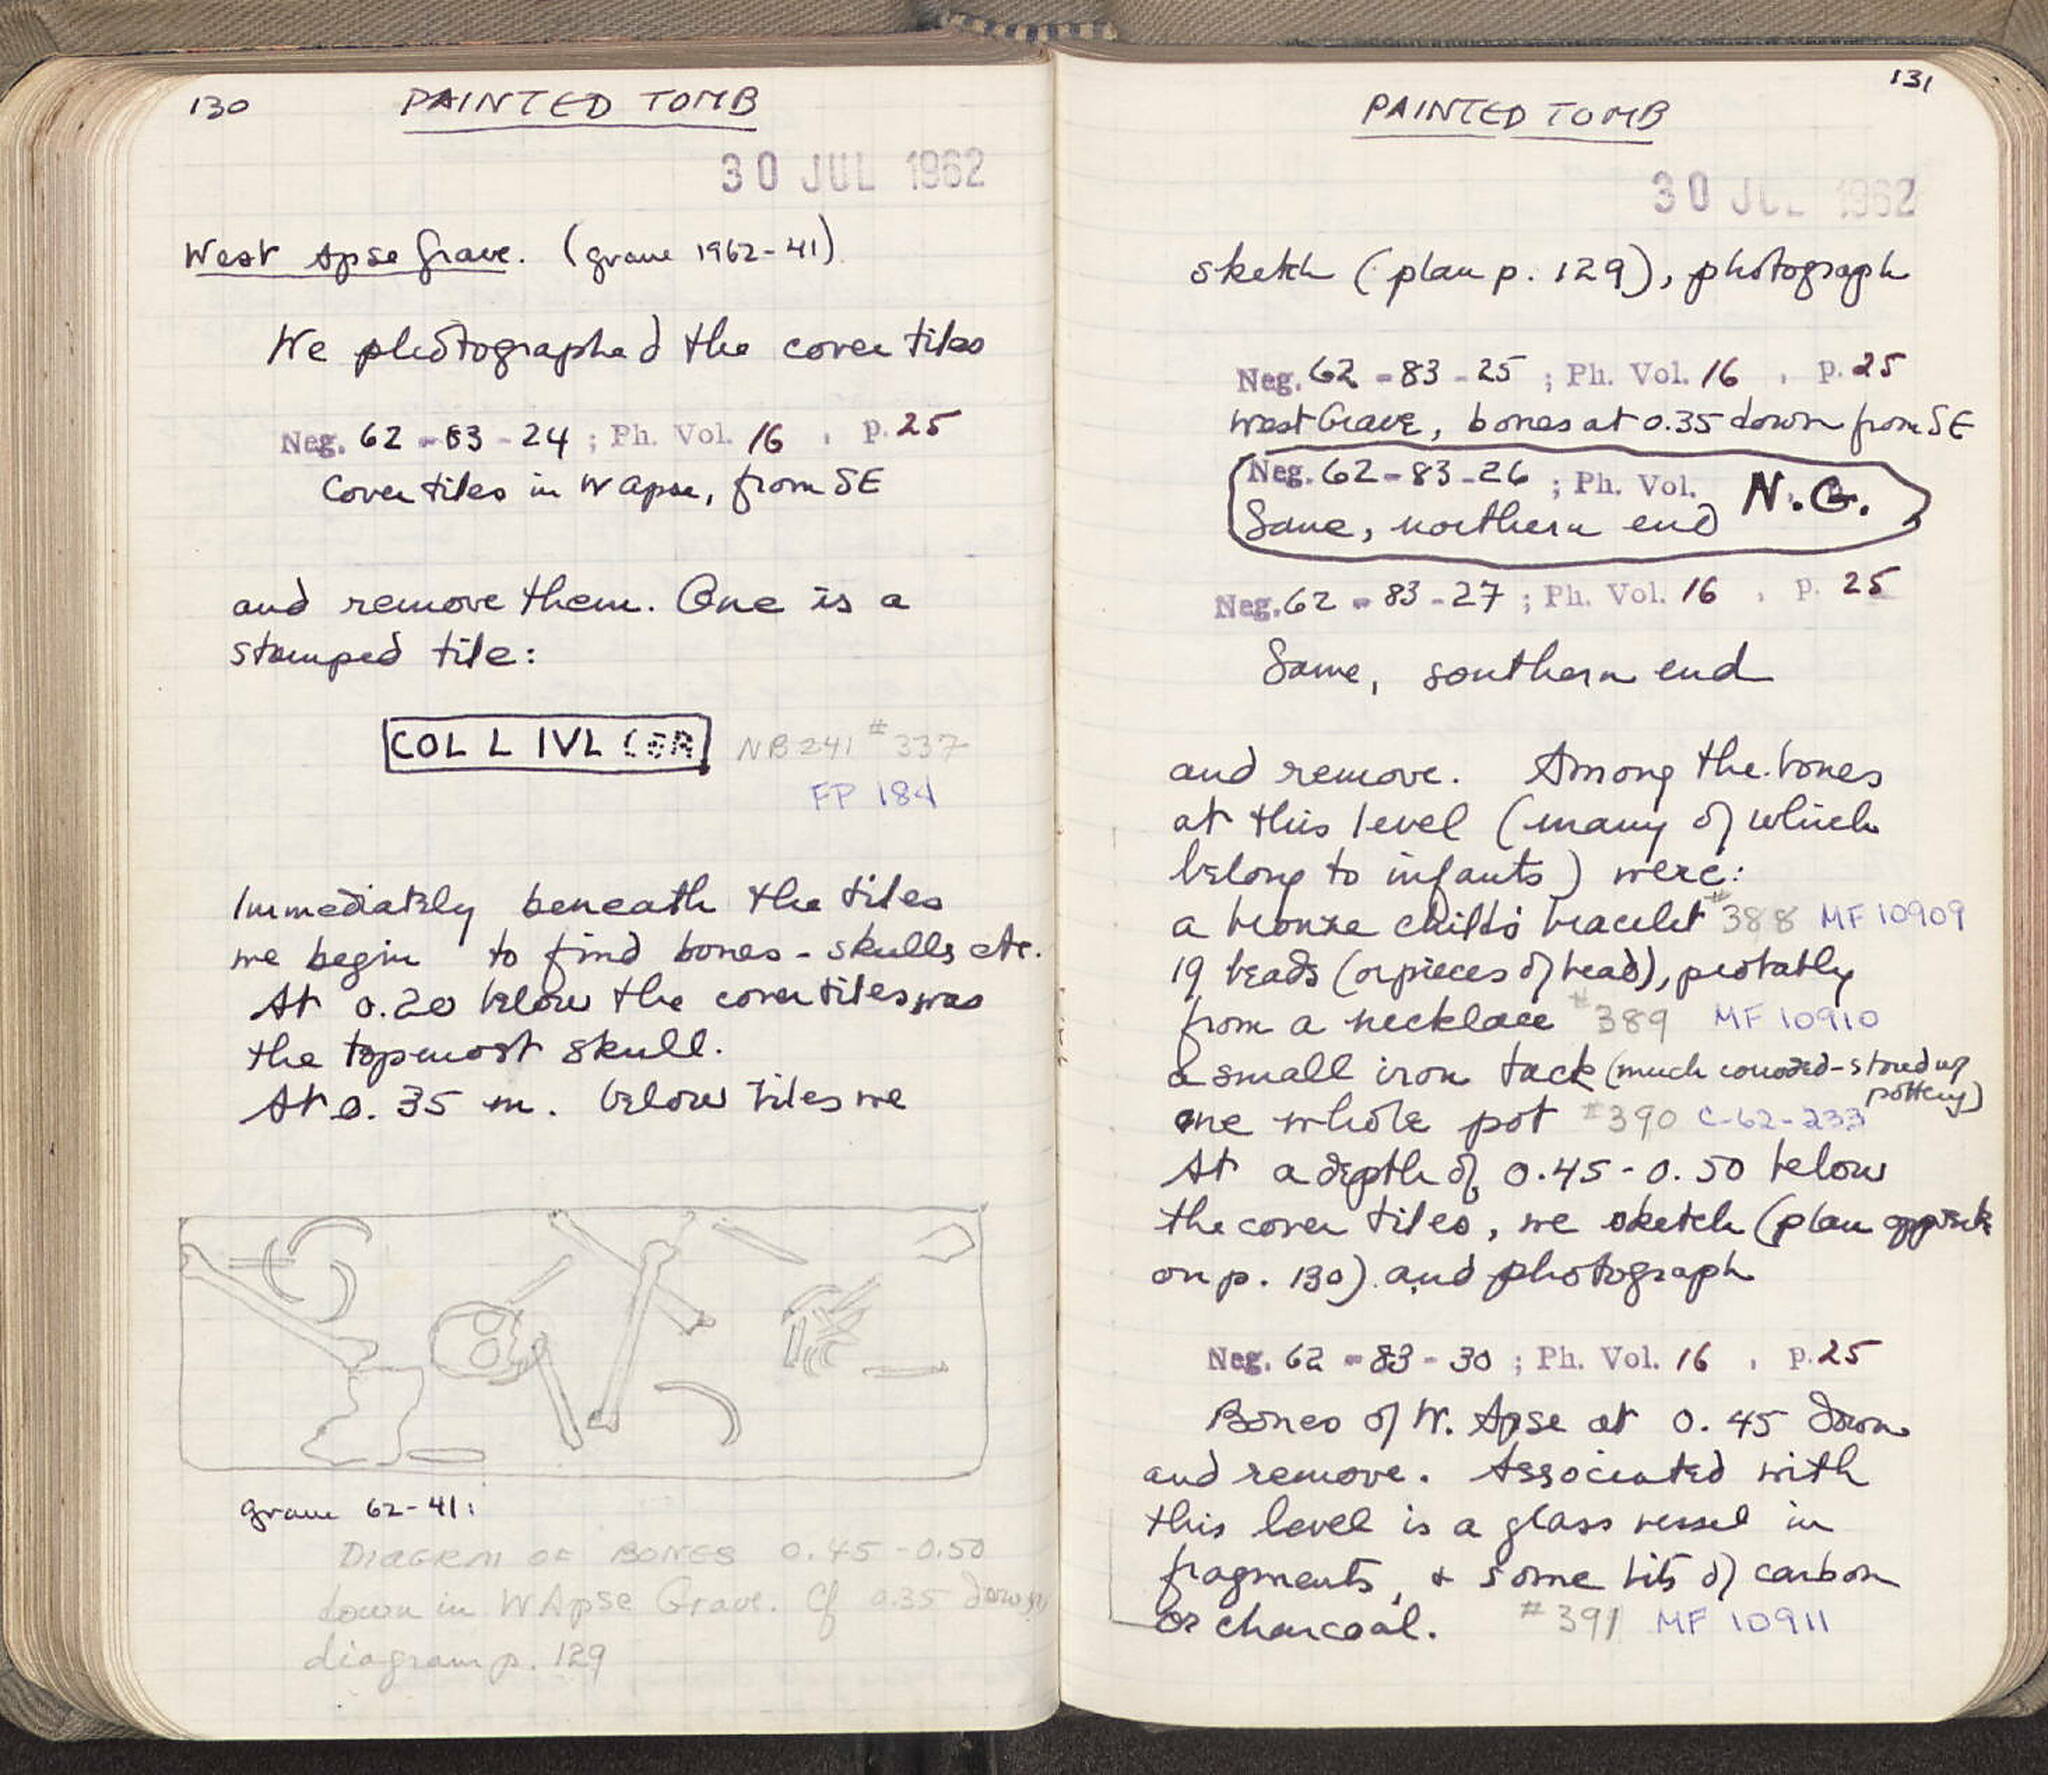 130 PAINTED TOMB
30 JUL 1962
West Apse Grave. (grave 1962-41)
We photographed the cover tiles
Neg. 62-83-24; Ph. Vol. 16, p. 25
Cover tiles in W apse, from SE
and remove them. One is a
stamped tile:
COL L IVL COR NB 241 #337
FP 184
Immediately beneath the tiles
we begin to find bones - skulls etc.
At 0.20 below the cover tiles was
the topmost skull.
At 0.35 m. below tiles we
grave 62-41:
DIAGRAM OF BONES 0.45-0.50
down in W Apse Grave. Cf 0.35 down
diagram p. 129
131
PAINTED TOMB
30 JUL 1962
sketch (plan p. 129), photograph
Neg. 62-83-25; Ph. Vol. 16, p. 25
West Grave, bones at 0.35 down from SE
Neg. 62-83-26; Ph. Vol. N.G.
Same, northern end
Neg. 62-83-27; Ph. Vol. 16, p. 25
Same, southern end
and remove. Among the bones
at this level (many of which
belong to infants) were:
a bronze child's bracelet #388 MF 10909
19 beads (or pieces of bead), probably
from a necklace #389 MF 10910
a small iron tack (much corroded - stored w/
pottery)
one whole pot #390 C-62-233
At a depth of 0.45-0.50 below
the cover tiles, we sketch (plan opposite
on p. 130) and photograph
Neg. 62-83-30; Ph. Vol. 16, p. 25
Bones of W. Apse at 0.45 down
and remove. Associated with
this level is a glass vessel in
fragments, & some bits of carbon
or charcoal. #391 MF 10911